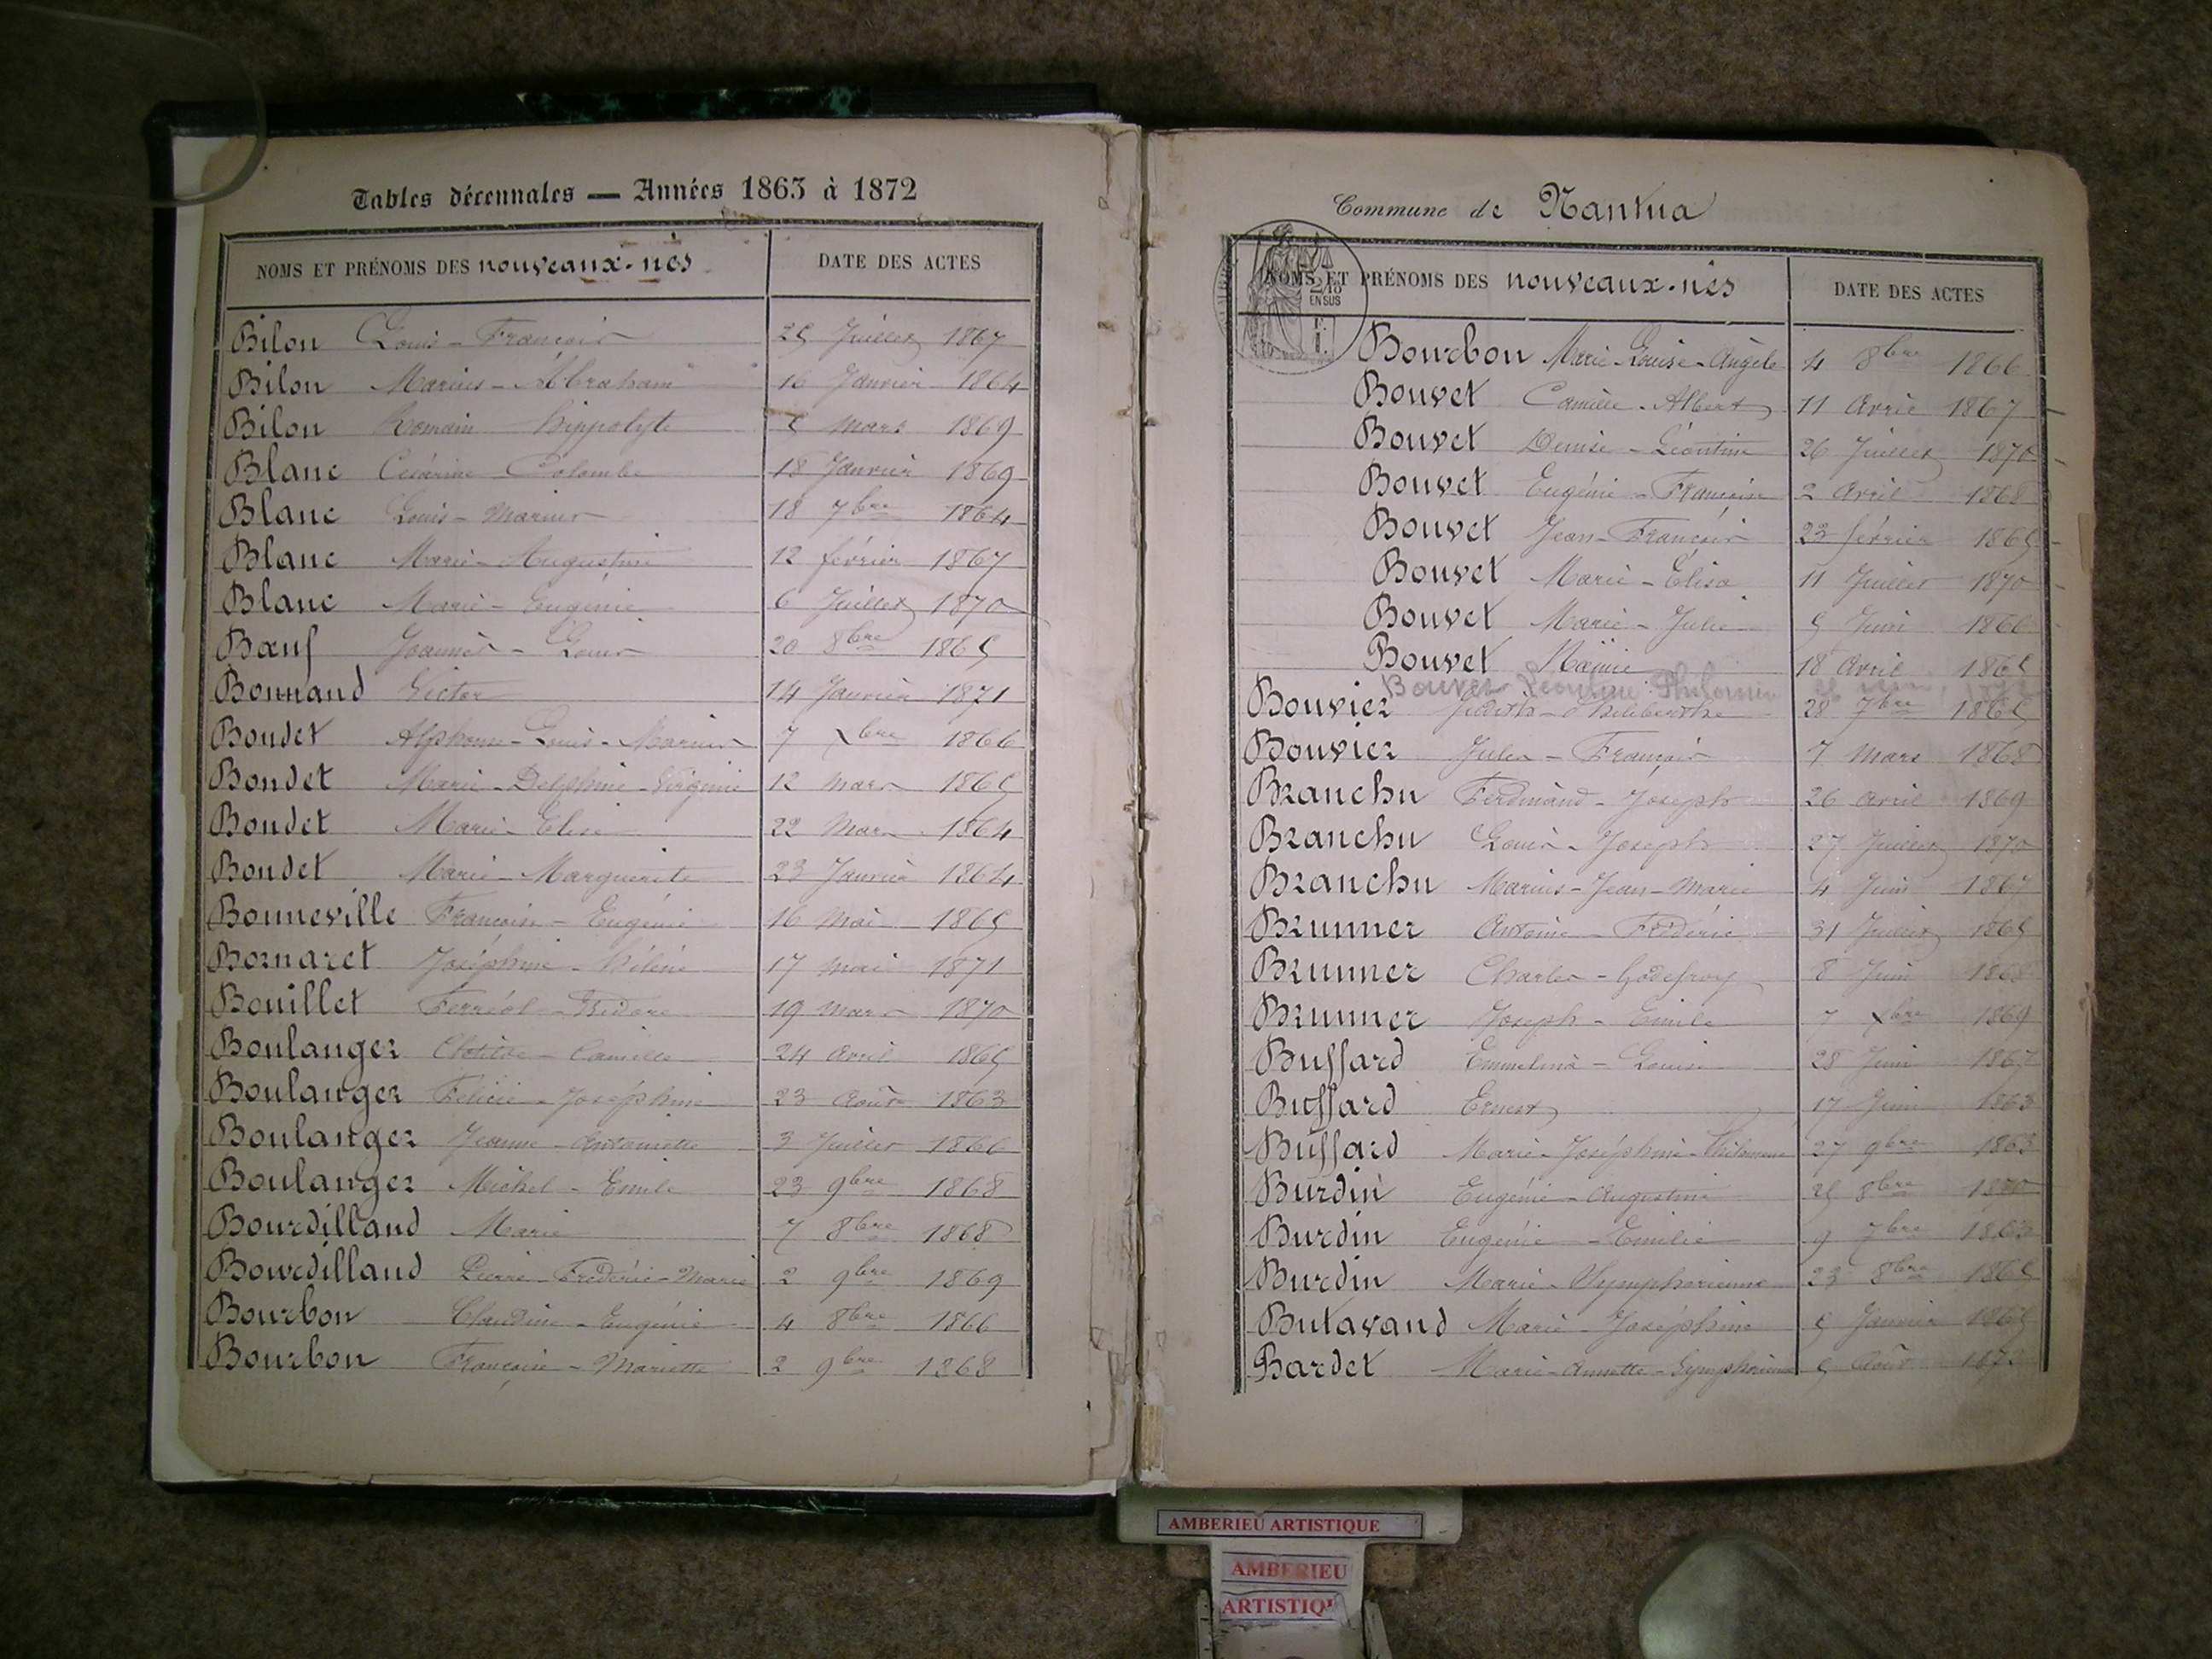 Tables décennales — Années 1863 à 1872
NOMS ET PRÉNOMS DES nouveaux-nés DATE DES ACTES
Bilon Louis - François 25 Juillet 1867
Bilon Marius - Abraham 16 Janvier 1864
Bilon Romain - hippolyte 5 Mars 1869
Blanc Césarine - Colombe 18 Janvier 1869
Blanc Louis - Marius 18 7bre 1864
Blanc Marie - Augustine 12 février 1867
Blanc Marie - Eugénie 6 Juillet 1870
Bœuf Joannès - Louis 20 8bre 1865
Bonnand Victor 14 Janvier 1871
Bondet Alphonse - Louis - Marius 7 Xbre 1866
Bondet Marie - Delphine - Virginie 12 mars 1865
Bondet Marie - Elise 22 Mars 1864
Bondet Marie - Marguerite 23 Janvier 1864
Bonneville Françoise - Eugénie 16 Mai 1865
Bornaret Joséphine - hélène 17 mai 1871
Bouillet Ferréol - Isidore 19 mars 1870
Boulanger Clotilde - Camille 24 avril 1865
Boulanger Félicie - Joséphine 23 Août 1863
Boulanger Jeanne - Antoinette 3 Juillet 1866
Boulanger Michel - Emile 23 9bre 1868
Bourdilland Marie 7 8bre 1868
Bourdilland Pierre - Frédéric - Marie 2 9bre 1869
Bourbon Claudine - Eugénie 4 8bre 1866
Bourbon Françoise - Mariette 2 9bre 1868
Commune de Nantua
NOMS ET PRÉNOMS DES nouveaux-nés DATE DES ACTES
2/10 EN SUS
Bourbon Marie - Louise - Angèle 4 8bre 1866
Bouvet Camille - Albert 11 avril 1867
Bouvet Denise - Léontine 26 Juillet 1870
Bouvet Eugénie - Françoise 2 avril 1868
Bouvet Jean - François 23 février 1865
Bouvet Marie - Elisa 11 Juillet 1870
Bouvet Marie - Julie 5 Juin 1866
Bouvet 18 avril 1865
Bouvet Léontine Philomène
Bouvier Judith - Philiberthe 28 7bre 1865
Bouvier Jules - François 7 mars 1868
Branchu Ferdinand - Joseph 26 avril 1869
Branchu Louis - Joseph 27 Juillet 1870
Branchu Marius - Jean - Marie 4 Juin 1867
Brunner Antoine - Frédéric 31 Juillet 1865
Brunner Charles - Godefroy 8 Juin 1868
Brunner Joseph - Emile 7 Xbre 1869
Buffard Emmelina - Louise 28 Juin 1867
Buffard Ernest 17 Juin 1863
Buffard Marie - Joséphine - Philomène 27 9bre 1863
Burdin Eugénie - Augustine 25 8bre 1870
Burdin Eugénie - Emilie 9 7bre 1863
Burdin Marie - Symphorienne 23 8bre 1865
Butavand Marie - Joséphine 5 Janvier 1865
Bardet Marie - Annette - Symphorienne 5 Août 1872
AMBERIEU ARTISTIQUE
AMBERIEU
ARTISTIQU